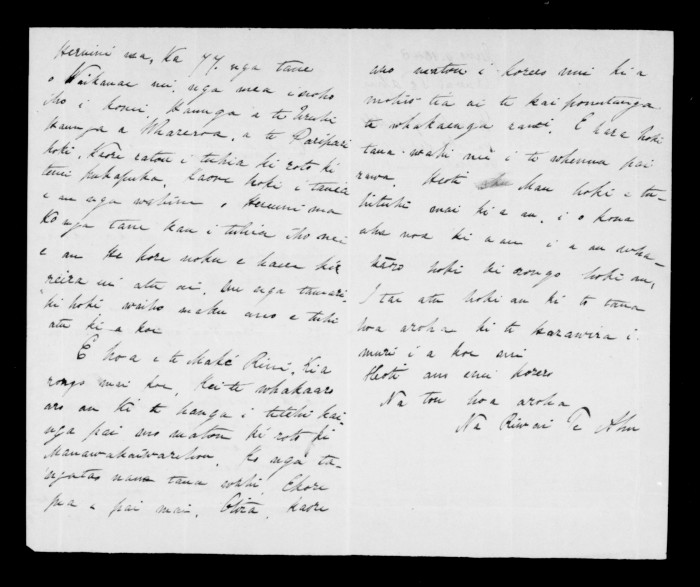 Hemini ma, Ka 77. nga tane
o Waikanae nei, nga mea i noho
iho i konei, Haunga a te Uruhi
haunga a Whareroa, a te Paripari
hoki, Kaore ratou i tuhia ki roto ki
tenei pukapuka, kaore hoki i tuhia
e au nga wahine, o Hemini ma
Ko nga tane kau i tuhia iho nei
e au He kore noku e haere ki
reira ai atu ai. Me nga tamari-
ki hoki waiho maku ano e tuhi
atu ki a koe
E hoa e te Makarini, Kia
rongo mai koe, Kei te whakaaro
ano au ki te hanga i tetehi kai-
nga pai mo matou ki roto ki
Ko nga ta-
ngata nana tana wahi, Ekore
pa e pai mai, Otira, kaore
ano matou i korero nui ki a
mohio tia ai te kai ponutunga
te whakaaenga ranei. E hara hoki
tana wahi nei i te whenua pai
rawa. Heoti Mau hoki e tu-
hituhi mai ki a au, i o kona
aha noa ki a au i a au wha-
karo hoki ki rongo hoki au,
I tae atu hoki au ki to tana
hoa aroha ki te Karawira i
muri i a koe nei
Heoti ano enei korero
Na tou hoa aroha
Na Riwai Te Ahu